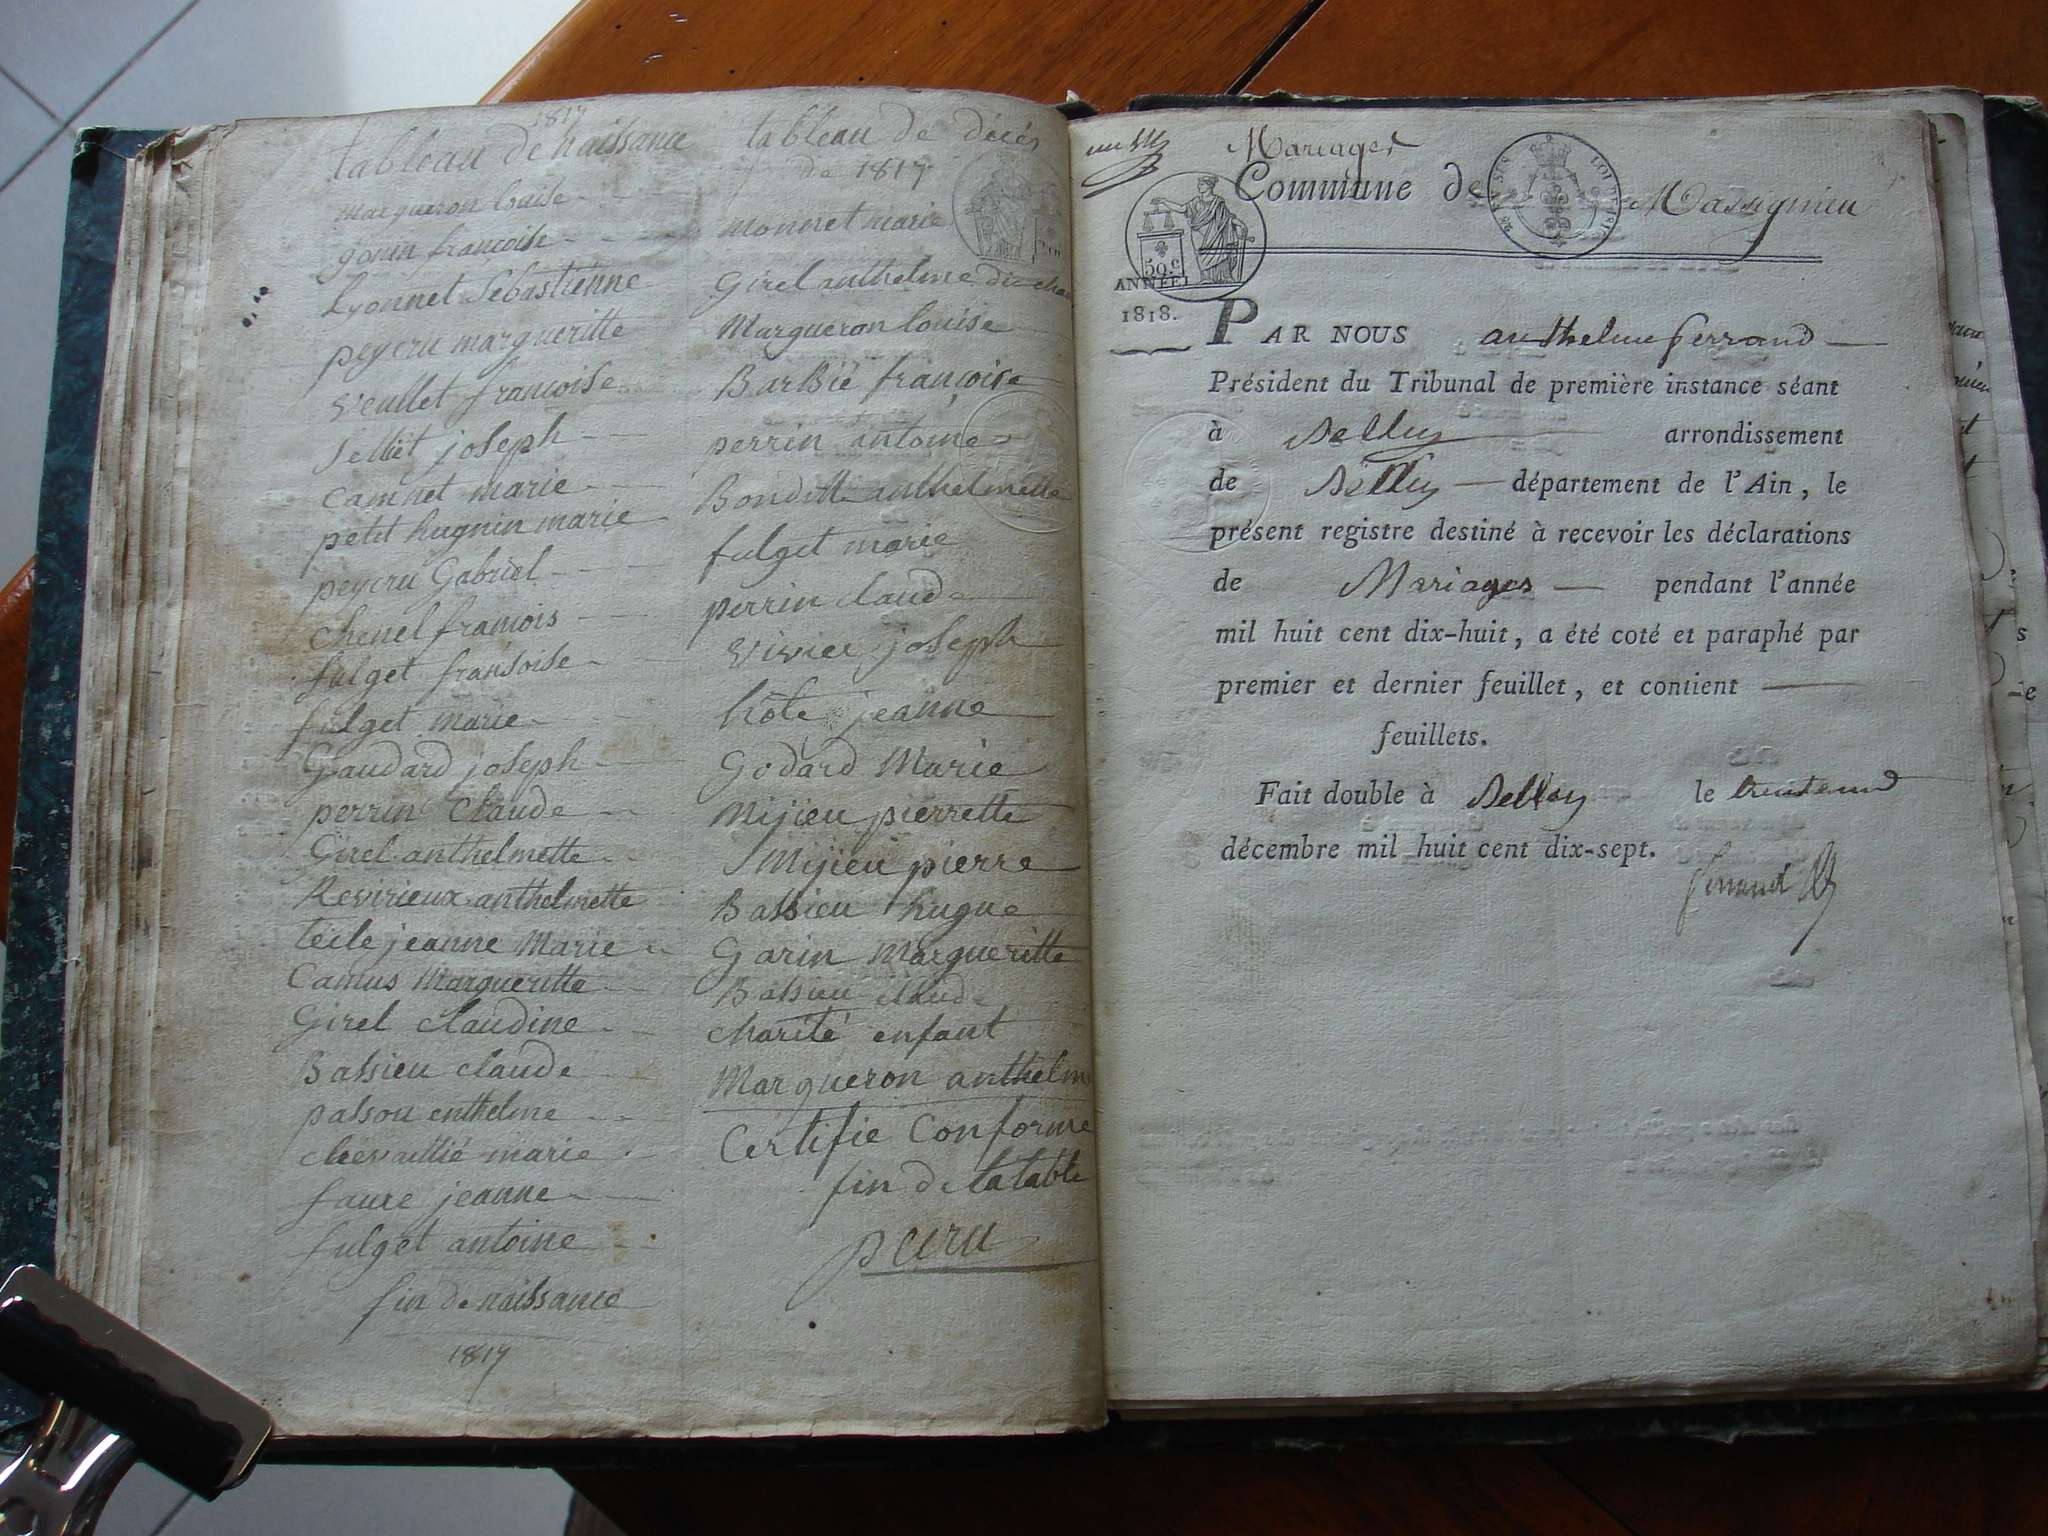 1817
tableau de naissance
margueron louise
gojin francoise
Lyonnet Sebastienne
peycru margueritte
veullet francoise
Selliet joseph
camnet marie
petit hugnin marie
peycru Gabriel
chenel francois
fulget fransoise
fulget marie
Gaudard joseph
perrin Claude
Girel anthelmette
Revirieux anthelmette
teile jeanne Marie
Camus Margueritte
Girel claudine
Bassieu claude
passou enthelme
chevaillié marie
faure jeanne
fulget antoine
fin de naissance
1817
tableau de décés
de 1817
monnet marie
Girel anthelme
Margueron louise
BarBié françoise
perrin antoine
Bondette anthelmette
fulget marie
perrin claude
vivier joseph
hôte jeanne
Godard Marie
Mijieu pierrette
Mijieu pierre
Bassieu hugue
Garin Margueritte
Bassieu claude
charité enfant
Margueron anthelme
Certifie Conforme
fin de la table
Mariages
Commune de Massignieu
50 c
ANNÉE
1818.
PAR NOUS anthelme ferrand
Président du Tribunal de première instance séant
à Belley arrondissement
de Belley département de l'Ain, le
présent registre destiné à recevoir les déclarations
de Mariages pendant l'année
mil huit cent dix-huit, a été coté et paraphé par
premier et dernier feuillet, et contient
feuillets.
Fait double à Belley le trente un
décembre mil huit cent dix-sept.